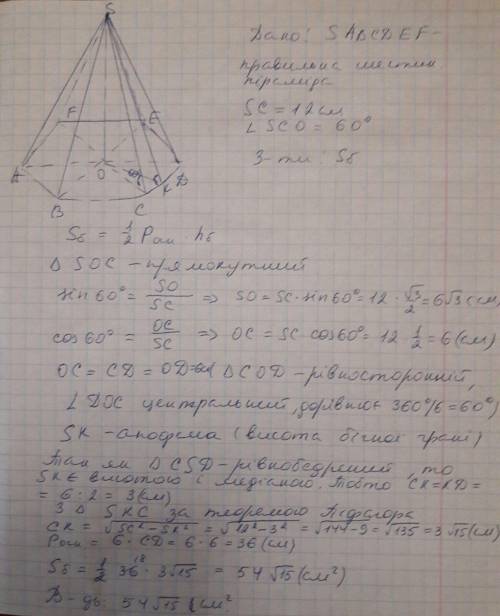 S
Дано: SABCDEF-
правильна шестик
піраміда
SC = 12 см
∠SCO = 60°
З-ти: Sб
F E
A O K D
B C
Sб = 1/2 Pосн · hб
Δ SOC - прямокутний
sin60° = SO/SC => SO = SC · sin60° = 12 · √3/2 = 6√3 (см)
cos60° = OC/SC => OC = SC · cos60° = 12 · 1/2 = 6 (см)
OC = CD = OD ΔCOD - рівносторонній,
∠DOC центральний, дорівнює 360°/6 = 60°)
SK - апофема (висота бічної грані)
Так як ΔCSD - рівнобедрений, то
SK є висотою і медіаною. Тобто CK = KD =
= 6 : 2 = 3 (см)
З Δ SKC за теоремою Піфагора
CK = √SC² - SK² = √12² - 3² = √144 - 9 = √135 = 3√15 (см)
Pосн = 6 · CD = 6 · 6 = 36 (см)
Sб = 1/2 36 18 · 3√15 = 54√15 (см²)
В-дь: 54√15 (см²